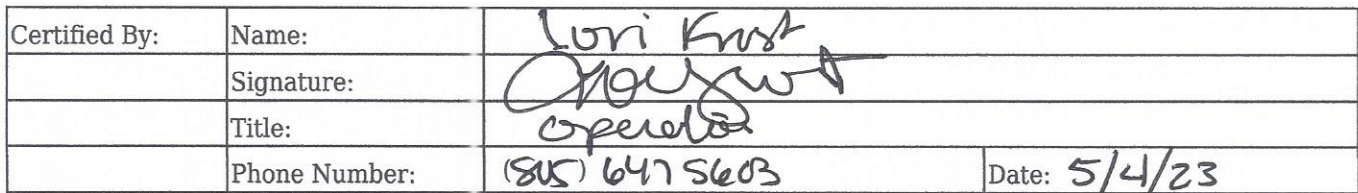 Certified By: Name: Lori Krost
Signature:
Title: Operator
Phone Number: (845) 647 5603 Date: 5/4/23